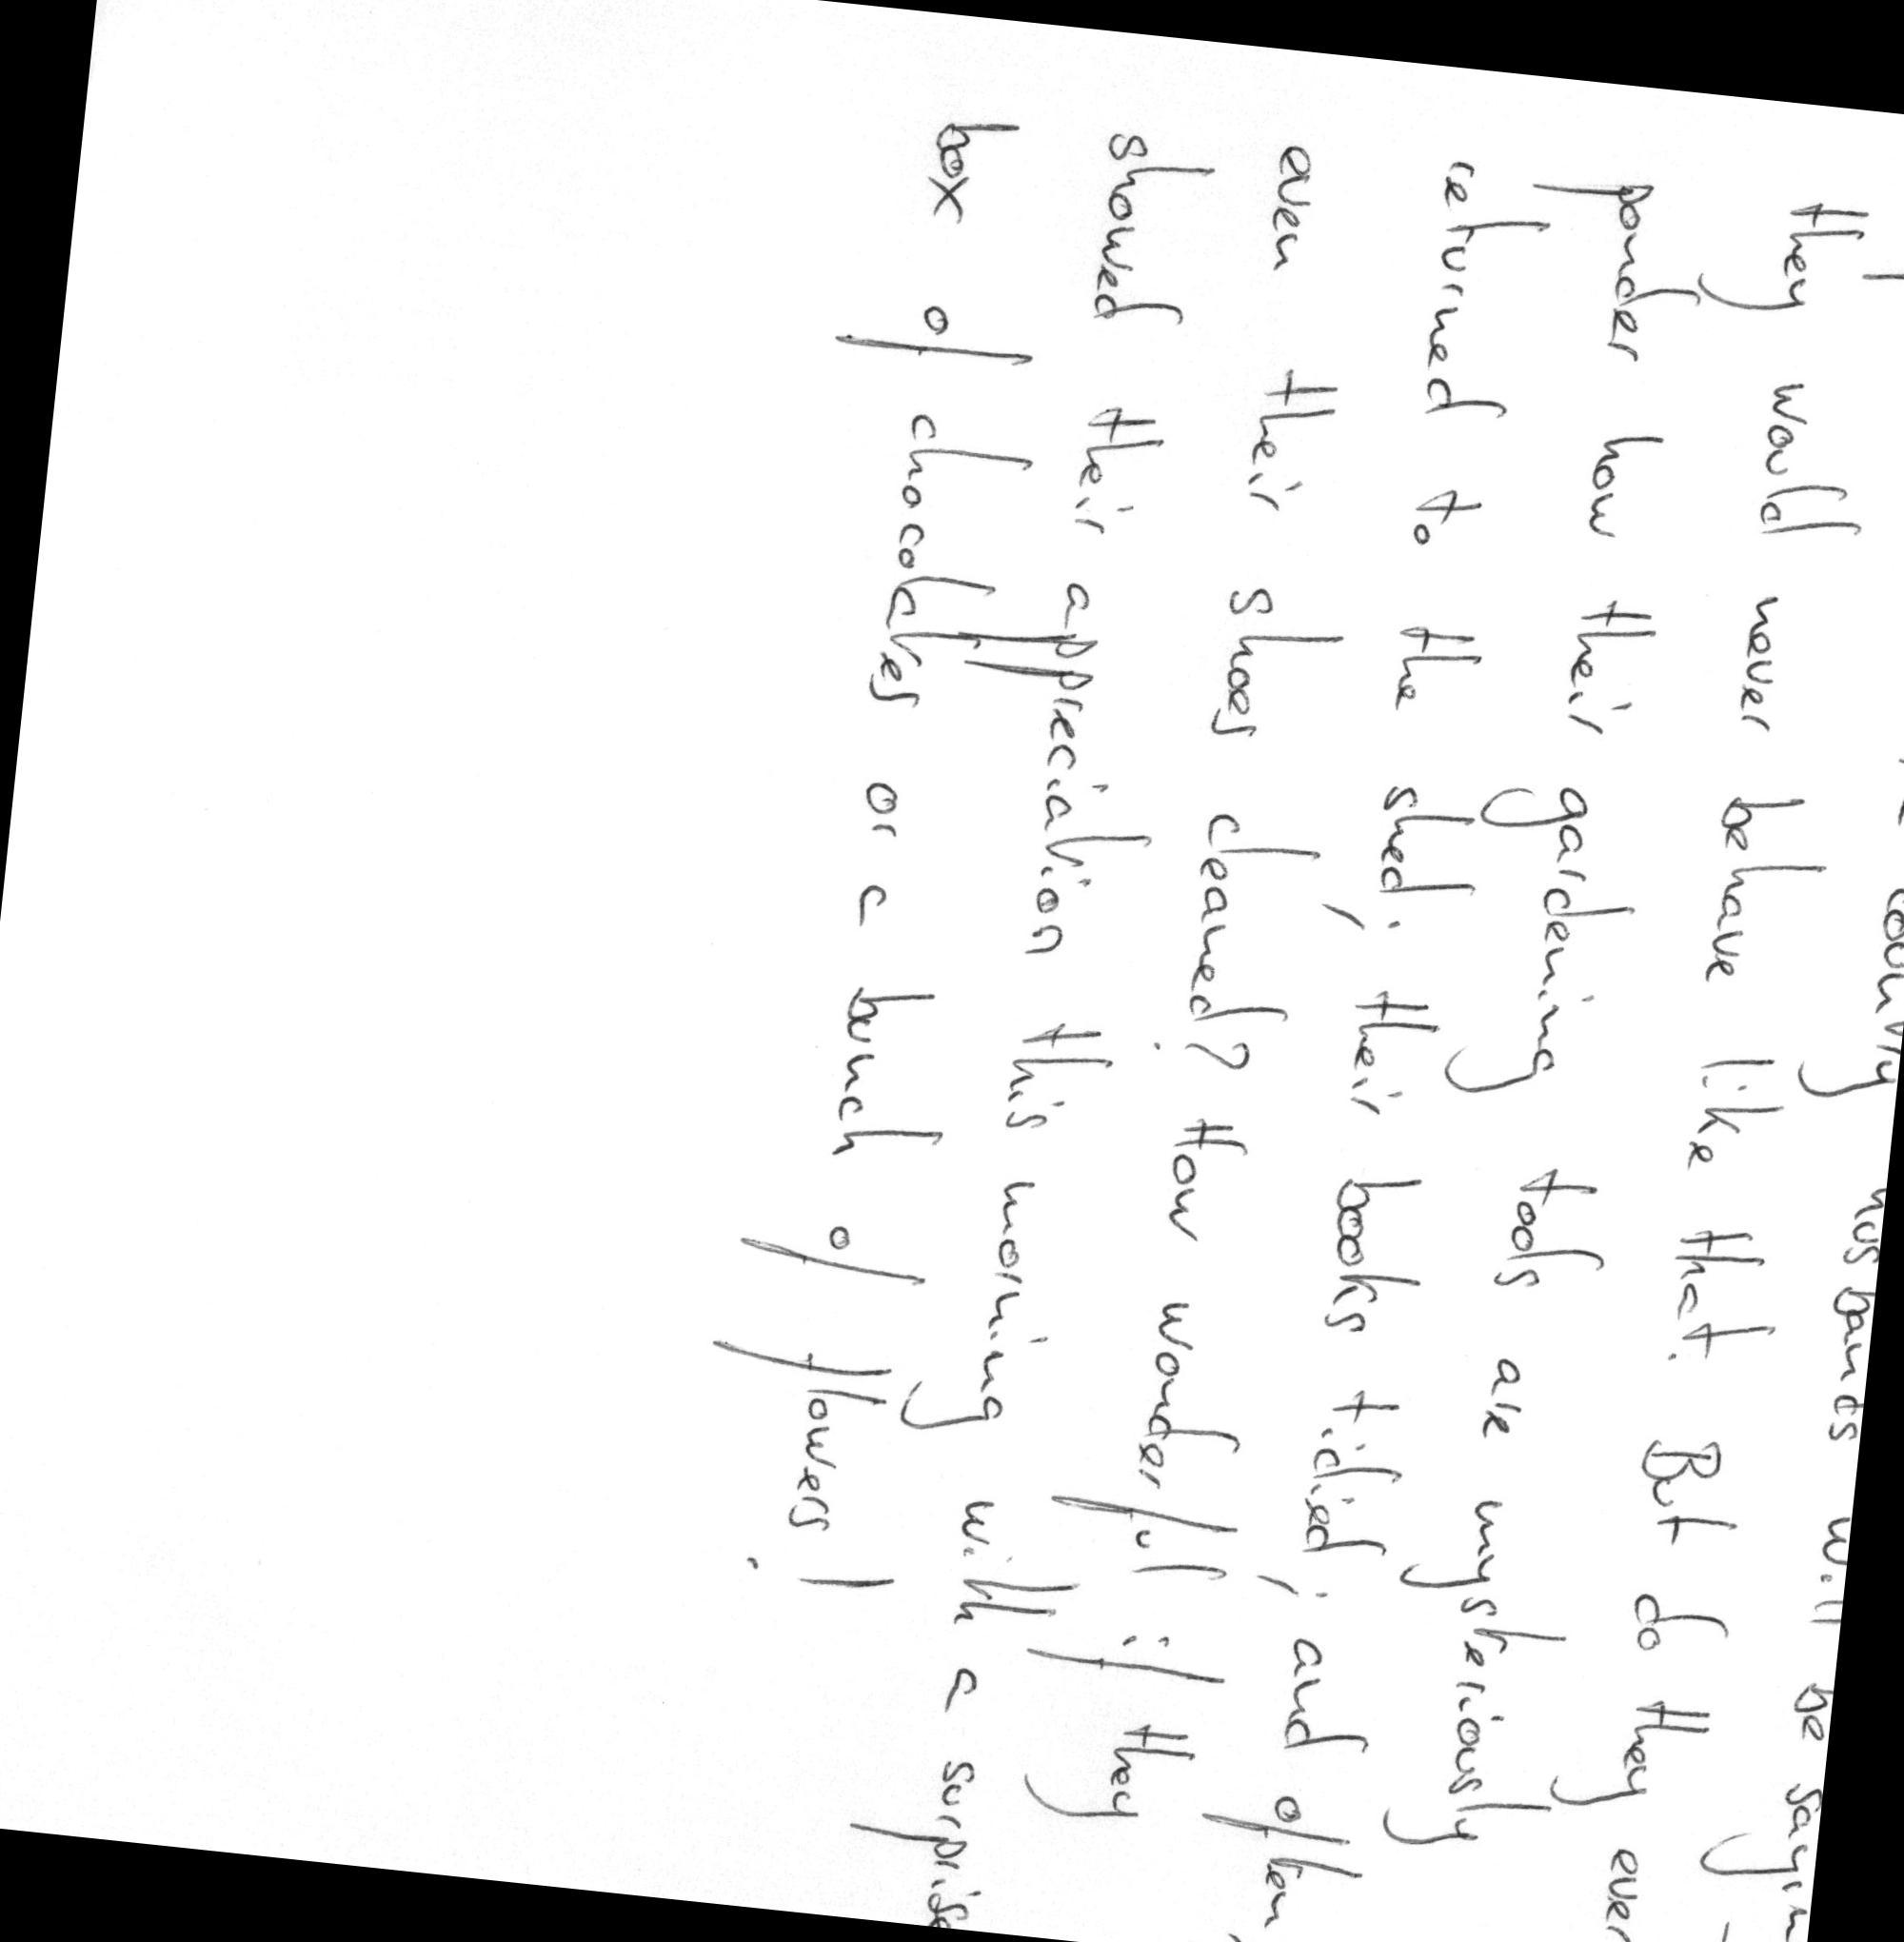 country husbands will be
they would never behave like that. But do they ever
ponder how their gardening tools are mysteriously
returned to the shed; their books tidied; and often
even their shoes cleaned? How wonderful if they
showed their appreciation this morning with a surprise
box of chocolates or a bunch of flowers!